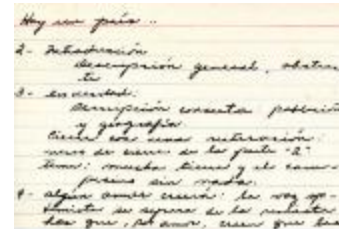 Hay un país ..
2- Introducción
descripción general, abstrac
ta
3- en verdad:
descripción concreta población
y geografía.
tierra con una
de la parte "2"
tema: mucha tierra y el cam-
pesino sin nada.
4- algún amor la voz op-
timista se separa de la
los que, por amor, creen que los